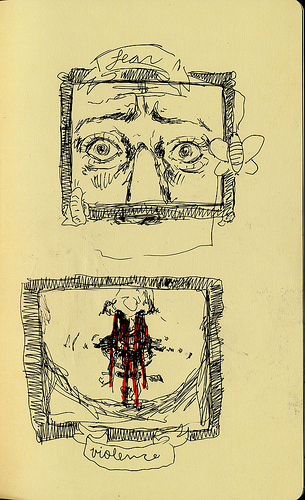 fear
violence